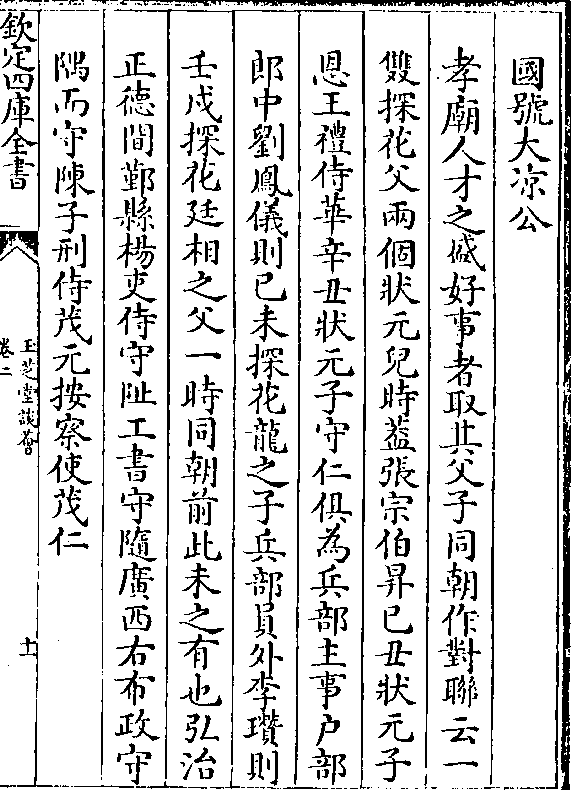 國號大凉公
孝廟人才之盛好事者取其父子同朝作對聯云一
雙探花父兩個狀元兒時葢張宗伯昇已丑狀元子
恩王禮侍華辛丑狀元子守仁俱為兵部主事户部
郎中劉鳳儀則已未探花龍之子兵部員外李瓚則
壬戌探花廷相之父一時同朝前此未之有也弘治
正德間鄞縣楊吏侍守阯工書守隨廣西右布政守
隅而守陳子刑侍茂元按察使茂仁
欽定四庫全書
玉芝堂談薈
卷二
十一